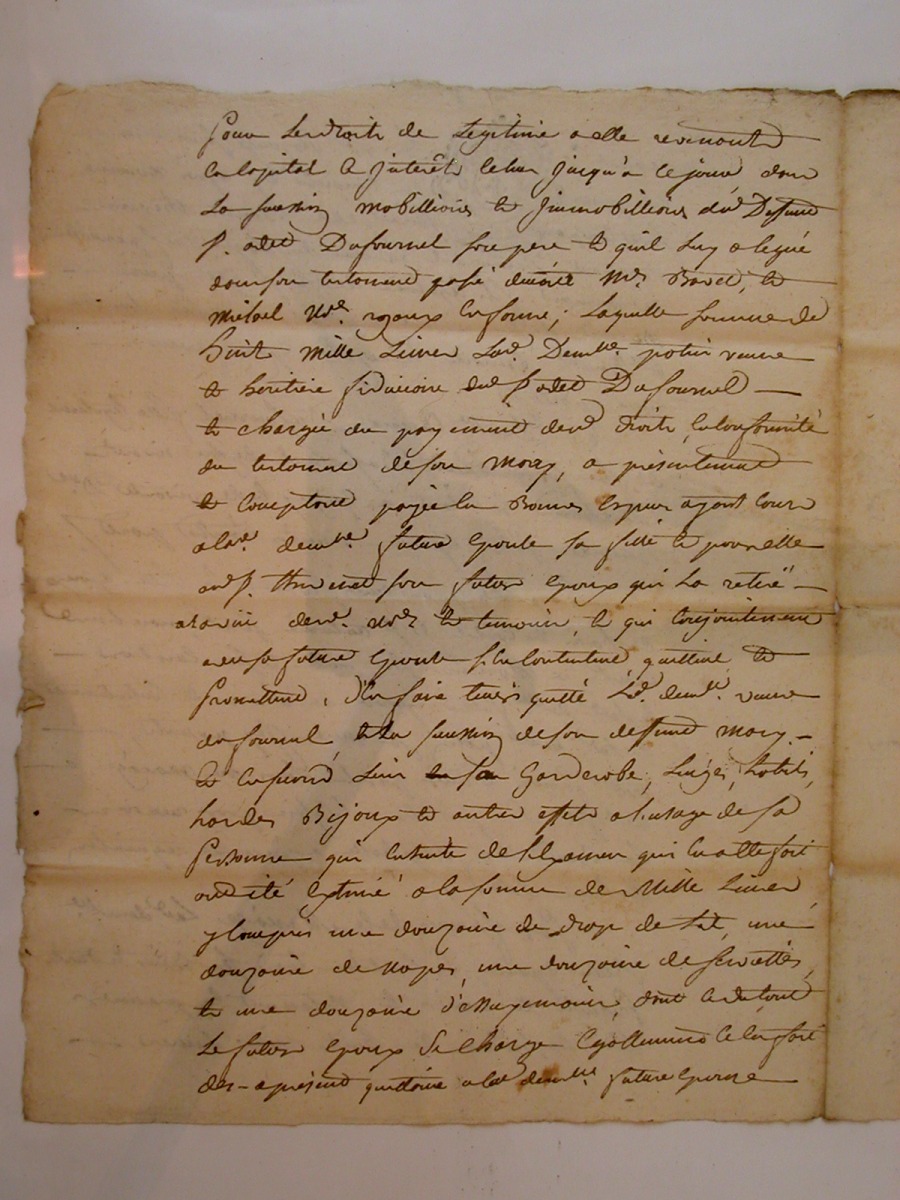 pour les droits de Legitime a elle revenants
en capital & interêts echus jusqu'a ce jour dans
La succession mobilliaire & Jmmobilliaire dud. Deffunt
s. Dufournel son pere & qu'il Luy a legué
dans son testament passé devant Mes. &
nores. royaux en forme; Laquelle somme de
huit mille Livres Lad. Demlle. veuve
& heritiere fiduciaire dud. s. Dufournel —
& chargée du payement desd. droits, en conformité
du testament de son mary, a presentement
& comptant payée en Bonnes Especes ayant cours
a lad. demlle. future Epouse sa fille & pour elle
aud. s. son futur Epoux qui La retiré —
au vû desd. nores. & temoins, & qui conjointement
avec sa future Epouse s'en contentent, quittent, &
promettent, d'en faire tenir quitte Lad. demlle. veuve
dufournel, & La succession de son deffunt mary —
& en second Lieu en sa Garderobe, Linges, habits,
hardes Bijoux & autres effets a l'usage de sa
personne qui ensuite de l'Examen qui en a esté fait
ont été Estimé a la somme de Mille Livres
y compris une douzaine de draps de Lit, une
douzaine de napes, une douzaine de serviettes,
& une douzaine d'essuyemains, dont & du tout
Le futur Epoux se charge Egallement & en fait
des-apresent quittance a lad. demlle. future Epouse —